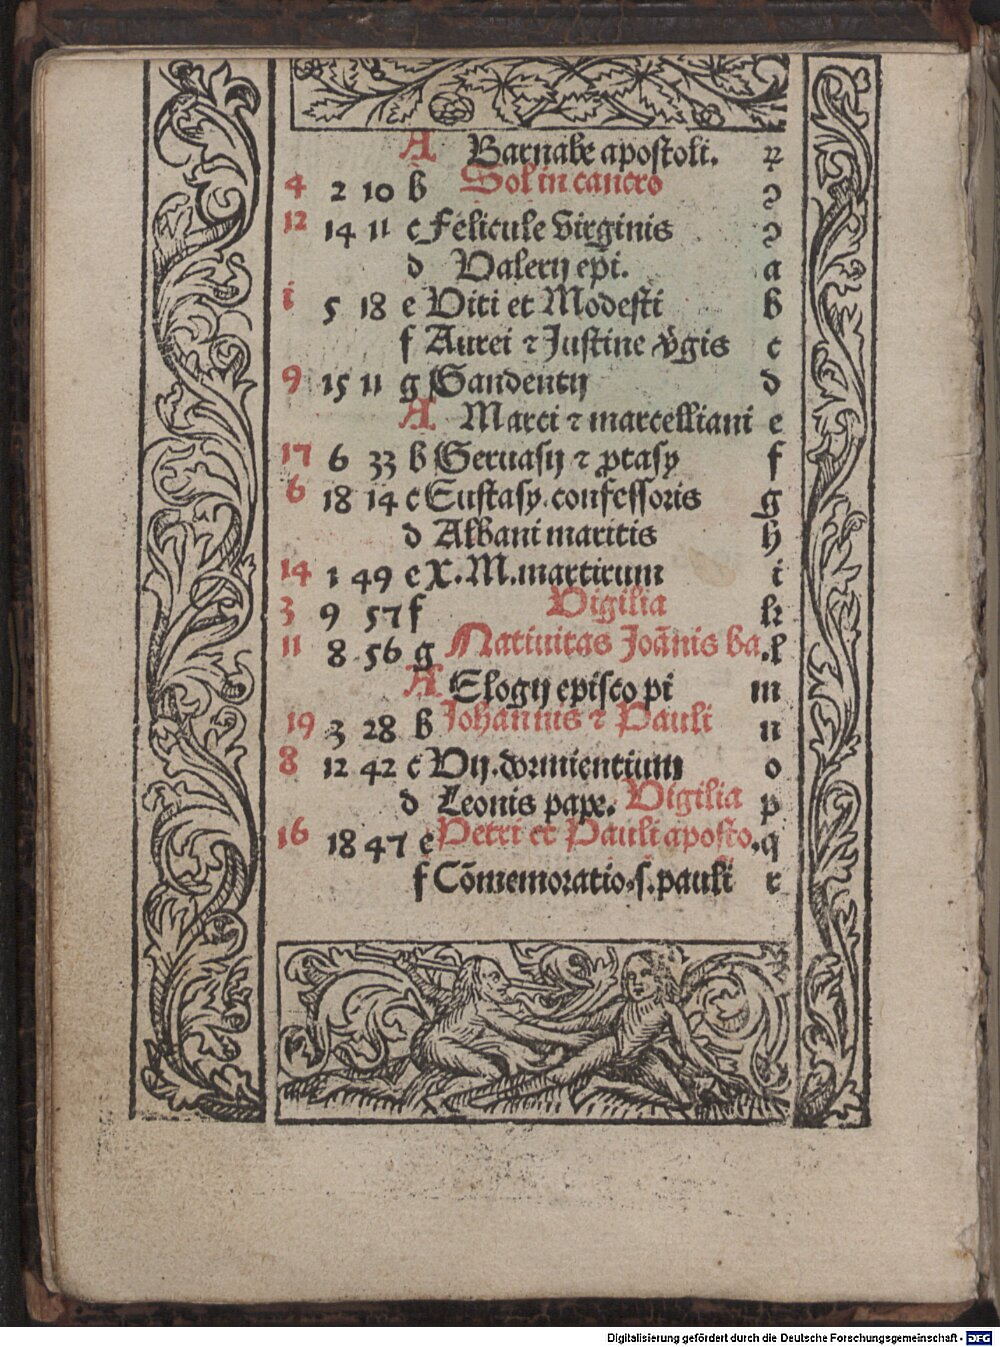 A Barnabe apostoli. ꝛ
4 2 10 b Sol in cancro ɔ
12 14 11 c Felicule virginis ɔ
d Valerij epī. a
i 5 18 e Viti et Modesti b
f Aurei ⁊ Justine v̄gis c
9 15 11 g Gaudentij d
A Marci ⁊ marcelliani e
17 6 33 b Geruasij ⁊ ꝓtasy f
6 18 14 c Eustasy. confessoris g
d Albani maritis h
14 1 49 e X. M. martirum i
3 9 57 f Vigilia k
11 8 56 g Natiuitas Joānis ba. l
A Elogij episcopi m
19 3 28 b Johannis ⁊ Pauli n
8 12 42 c Vij. dormientium o
d Leonis pape. Vigilia p
16 18 47 e Petri et Pauli aposto. q
f Cōmemoratio. s. pauli r
Digitalisierung gefördert durch die Deutsche Forschungsgemeinschaft - DFG